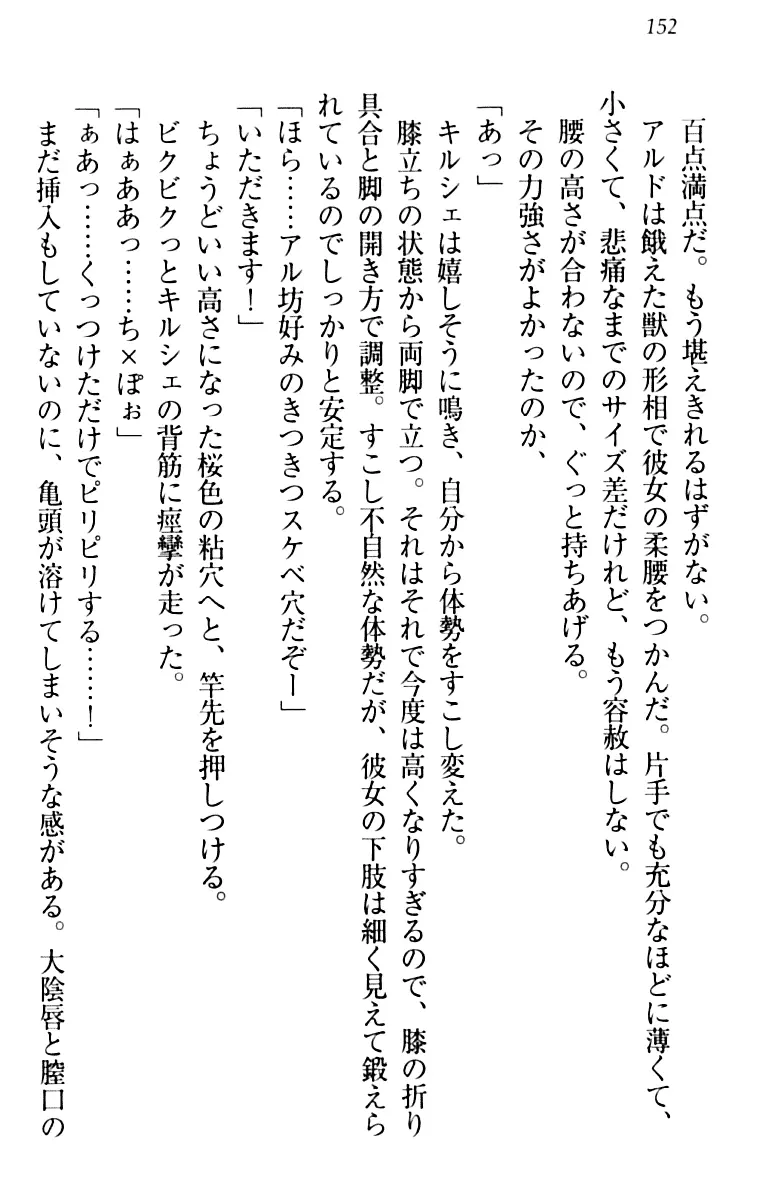 152
百点満点だ。もう堪えきれるはずがない。
アルドは餓えた獣の形相で彼女の柔腰をつかんだ。片手でも充分なほどに薄くて、
小さくて、悲痛なまでのサイズ差だけれど、もう容赦はしない。
腰の高さが合わないので、ぐっと持ちあげる。
その力強さがよかったのか、
「あっ」
キルシェは嬉しそうに鳴き、自分から体勢をすこし変えた。
膝立ちの状態から両脚で立つ。それはそれで今度は高くなりすぎるので、膝の折り
具合と脚の開き方で調整。すこし不自然な体勢だが、彼女の下肢は細く見えて鍛えら
れているのでしっかりと安定する。
「ほら……アル坊好みのきつきつスケベ穴だぞー」
「いただきます！」
ちょうどいい高さになった桜色の粘穴へと、竿先を押しつける。
ビクビクっとキルシェの背筋に痙攣が走った。
「はぁああっ……ち×ぽぉ」
「ぁあっ……くっつけただけでピリピリする……！」
まだ挿入もしていないのに、亀頭が溶けてしまいそうな感がある。大陰唇と膣口の